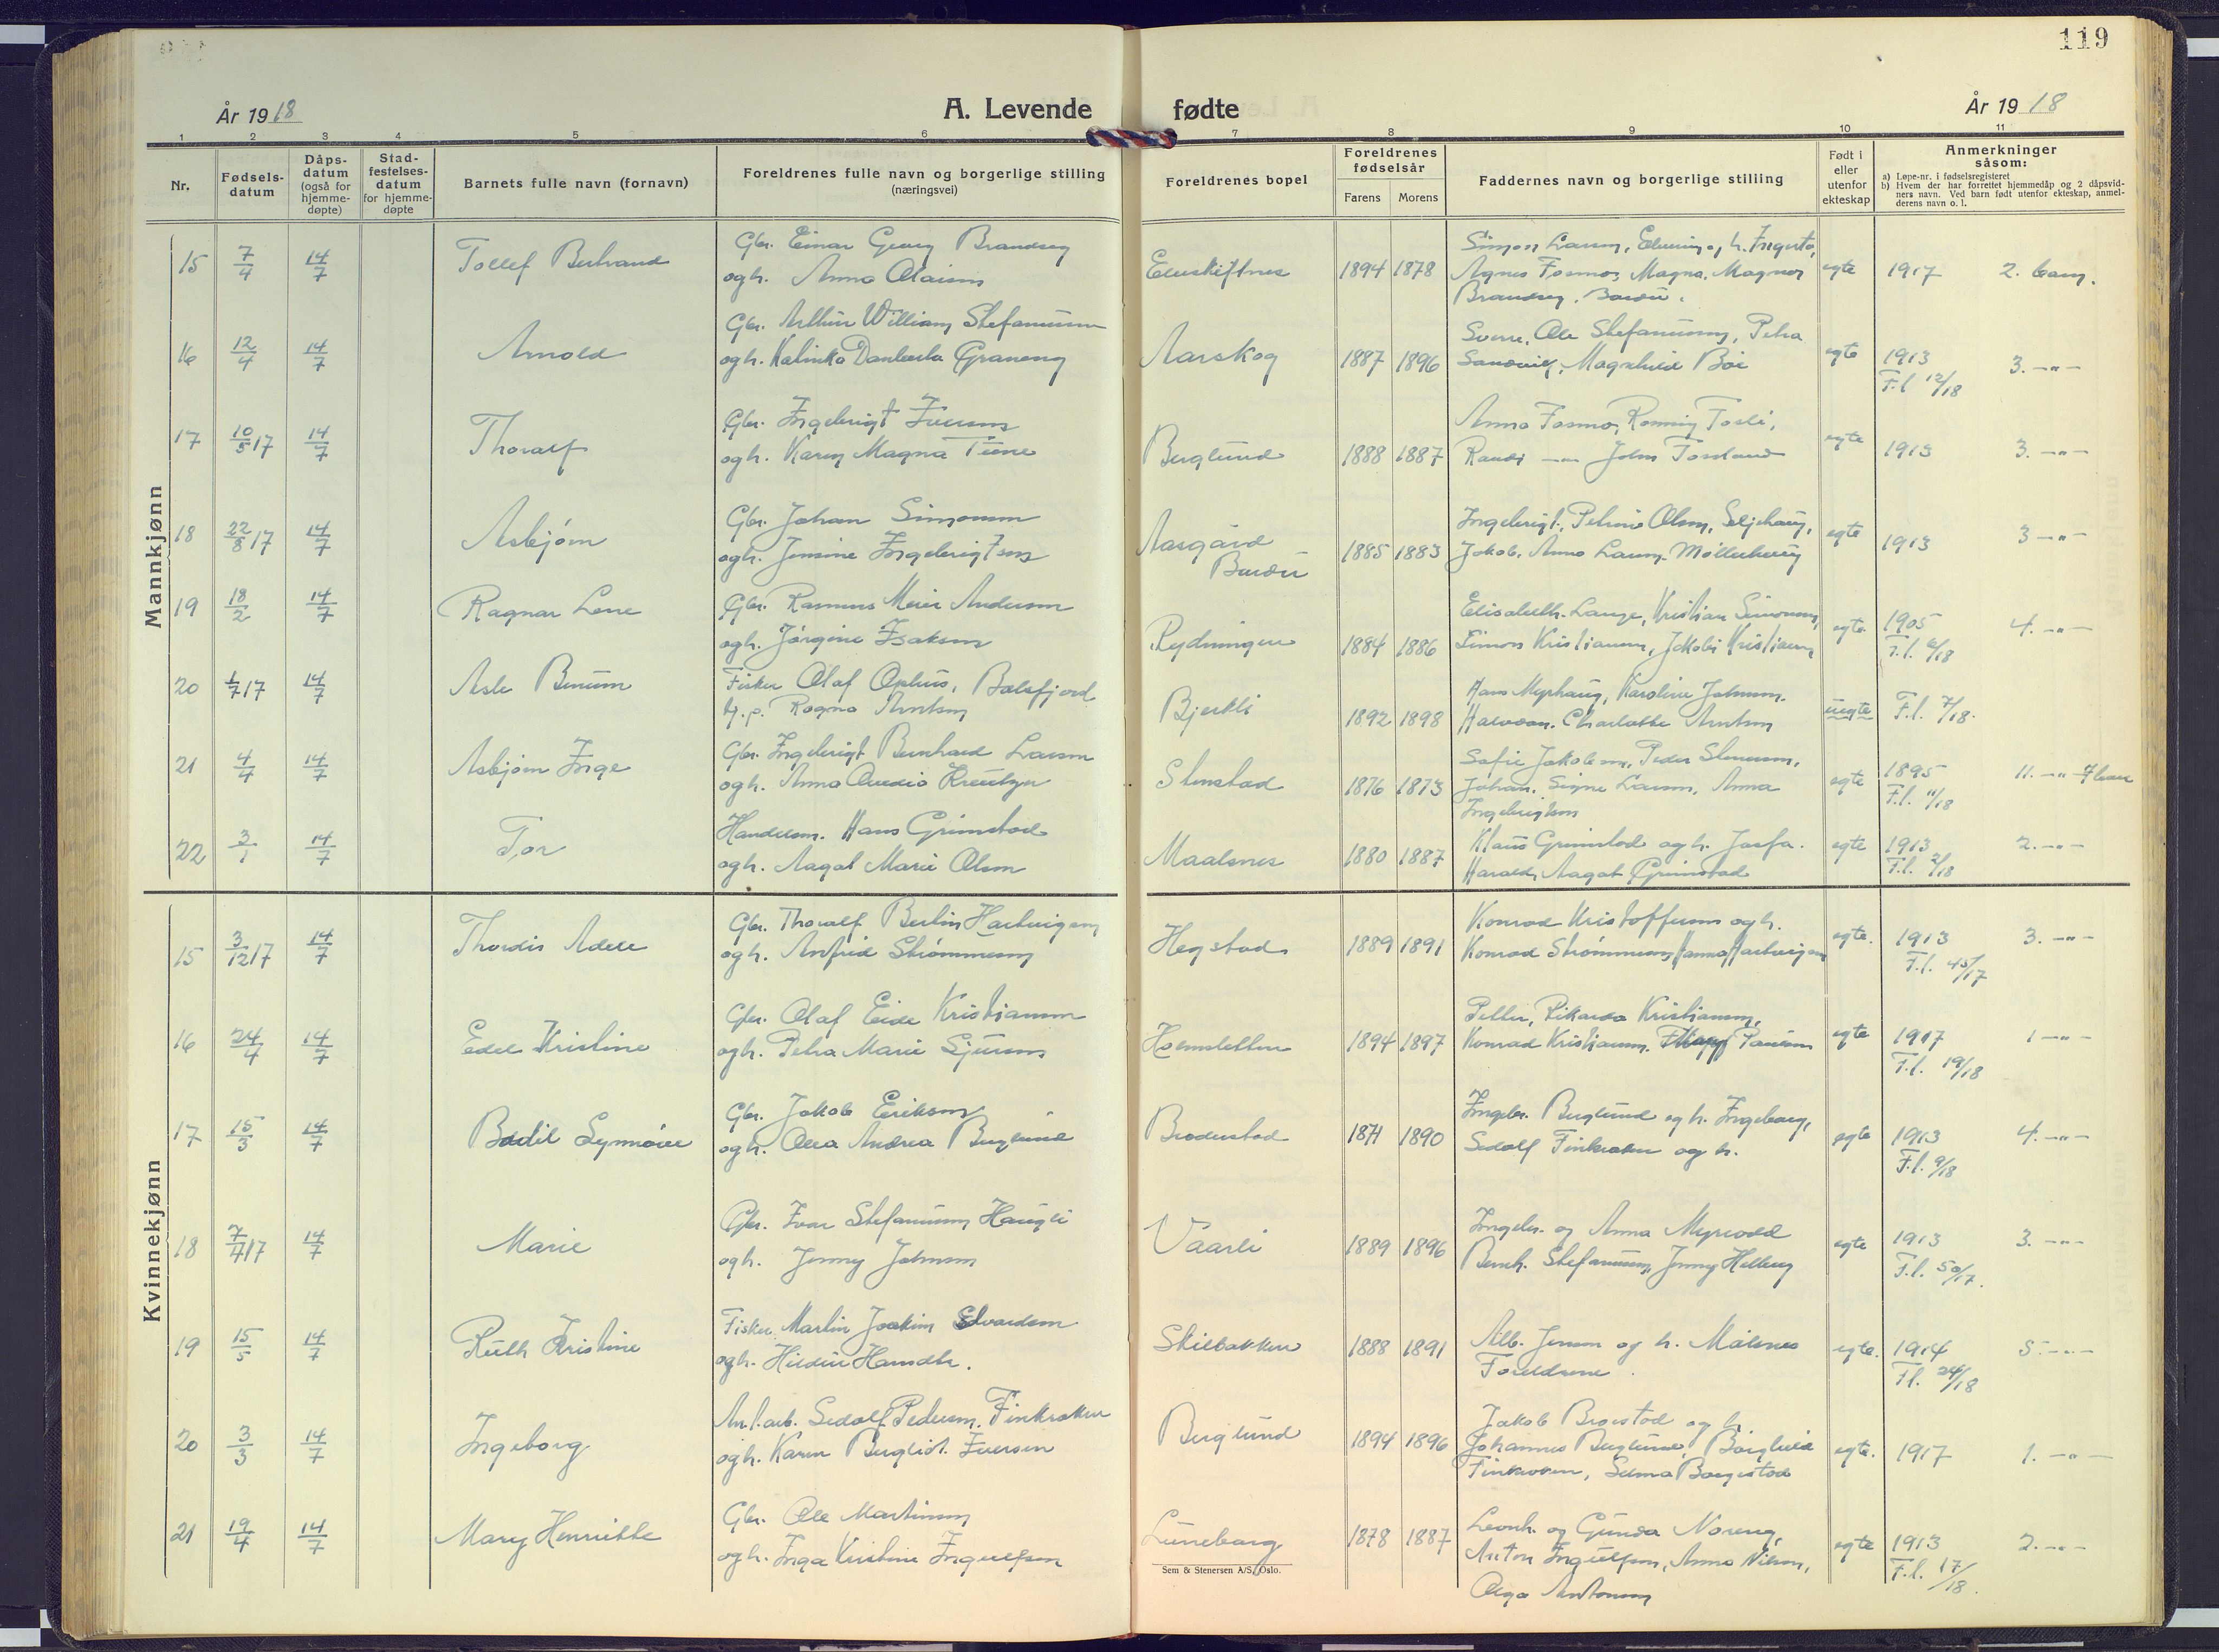 119
År 1918
A. Levende fødte
År 1918
1 2 3 4 5 6 7 8 9 10 11
Nr.
Fødsels-
datum
Dåps-
datum
(også for
hjemme-
døpte)
Stad-
festelses-
datum
for hjemme-
døpte
Barnets fulle navn (fornavn)
Foreldrenes fulle navn og borgerlige stilling
(næringsvei)
Foreldrenes bopel
Foreldrenes
fødselsår
Farens Morens
Faddernes navn og borgerlige stilling
Født i
eller
utenfor
ekteskap
Anmerkninger
såsom:
a) Løpe-nr. i fødselsregisteret
b) Hvem der har forrettet hjemmedåp og 2 dåpsvid-
ners navn. Ved barn født utenfor ekteskap, anmel-
derens navn o. l.
Mannkjønn
15 7/4 14/7 Tollef
Gbr. Einar Georg Brandseg
og h. Anna
1894 1878
Simon Larsen, og h.
Agnes Fosmo, Magna, Magnor
Brandseg, Bardu.
egte 1917 2.
16 12/4 14/7 Arnold
Gbr. Arthur William Stefanussen
og h. Kalinka Graneng
Aarskog 1887 1896
Sverre, Ole Stefanussen, Petra
Magnhild Bøe
egte 1913 3. -"-
F.l. 12/18
17 10/5 17 14/7 Thoralf
Gbr. Ingebrigt Iversen
og h. Karen Magna
Berglund 1888 1887
Anna Fosmo,
Randi -"- John Fossland
egte 1913 3. -"-
18 22/8 17 14/7 Asbjørn
Gbr. Johan Simonsen
og h. Jensine Ingebrigtsen
Aasgård
Bardu
1885 1883
Ingebrigt, Petrine Olsen, Seljehaug,
Jakob, Anna Larsen, Møllerhaug
egte 1913 3 -"-
19 18/2 14/7 Ragnar
Gbr. Rasmus Meier Andersen
og h. Jørgine Isaksen
Rydningen 1884 1886
Elisabeth Lange, Kristian Simonsen,
Simon Kristiansen, Jakobi Kristiansen
egte 1905 4. -"-
F.l. 6/18
20 1/7 17 14/7 Asle
Fisker Olaf Ophus, Balsfjord
Ragna Arntsen
Bjerkli 1892 1898
Hans Myrhaug, Karoline Johnsen.
Halvdan, Charlotte Arntsen
uegte F.l. 7/18.
21 4/4 14/7 Asbjørn Inge
Gbr. Ingebrigt Bernhard Larsen
og h. Anna
Stenstad 1876 1873
Sofie Jakobsen, Peder Stenersen,
Johan, Signe Larsen, Anna
Ingebrigtsen
egte 1895 11. -"-
F.l. 11/18
22 3/1 14/7 Tor
Handelsm. Hans Grimstad
og h. Aagot Marie Olsen
Maalsnes 1880 1887
Klaus Grimstad og h.
Harald, Aagot Grimstad
egte 1913 2. -"-
F.l. 2/18
Kvinnekjønn
15 3/12 17 14/7 Thordis Adele
Gbr. Thoralf Berlin Hartvigsen
og h. Anfrid Strømmesen
Hegstad 1889 1891
Konrad Kristoffersen og h.
Konrad Strømmesen, Hanna Hartvigsen
egte. 1913 3. -"-
F.l. 45/17
16 24/4 14/7 Edel Kristine
Gbr. Olaf Eide Kristiansen
og h. Petra Marie Sjursen
Holmsletten 1894 1897
Petter, Rikarda Kristiansen,
Konrad Kristiansen, Paulsen
egte 1917 1 -"-
F.l. 19/18
17 15/3 14/7 Bodil Synnøve
Gbr. Jakob Eriksen
og h. Olea Andrea Berglund
Brodestad 1871 1890
Ingebr. Berglund og h. Ingeborg,
Sedolf Finkroken og h.
egte 1913 4. -"-
F.l. 9/18
18 7/7 17 14/7 Marie
Gbr. Ivar Stefanussen Haugli
og h. Jenny Johnsen
Vaarli 1889 1896
Ingebr. og Anna Myrvold
Bernh. Stefanussen, Jenny Helberg
egte 1913 3. -"-
F.l. 50/17.
19 15/5 14/7 Ruth Kristine
Fisker Martin Joakim Edvardsen
og h. Hildur Hansdtr.
Skilbakken 1888 1891
Alb. Jensen og h. Målsnes
Foreldrene.
egte. 1914 5. -"-
F.l. 24/18
20 3/3 14/7 Ingeborg
Anl.arb. Sedolf Pedersen Finkroken
og h. Karen Bergliot Iversen
Berglund 1894 1896
Jakob og h.
Johannes Berglund, Borghild
Finkroken, Selma
egte. 1917 1. -"-
21 19/4 14/7 Mary Henriette
Gbr. Ole Martinsen
og h. Inga Kristine Ingulfsen
Luneborg 1878 1887
Leonh. og Gunda Noreng,
Anton Ingulfsen, Anna Nilsen,
Olga Antonsen
egte 1913 2. -"-
F.l. 17/18.
Sem & Stenersen A/S, Oslo.